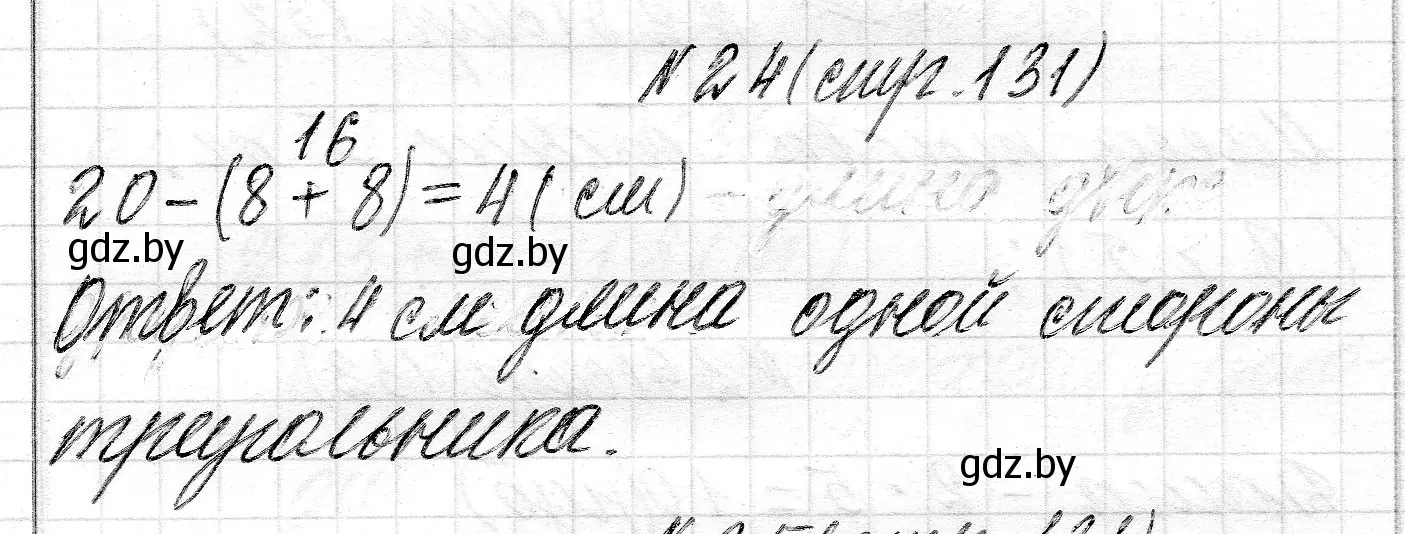 №24 (стр. 131)
16
20-(8+8)=4 (см) - длина
gdz.by gdz.by
Ответ: 4 см длина одной стороны
треугольника.
gdz.by